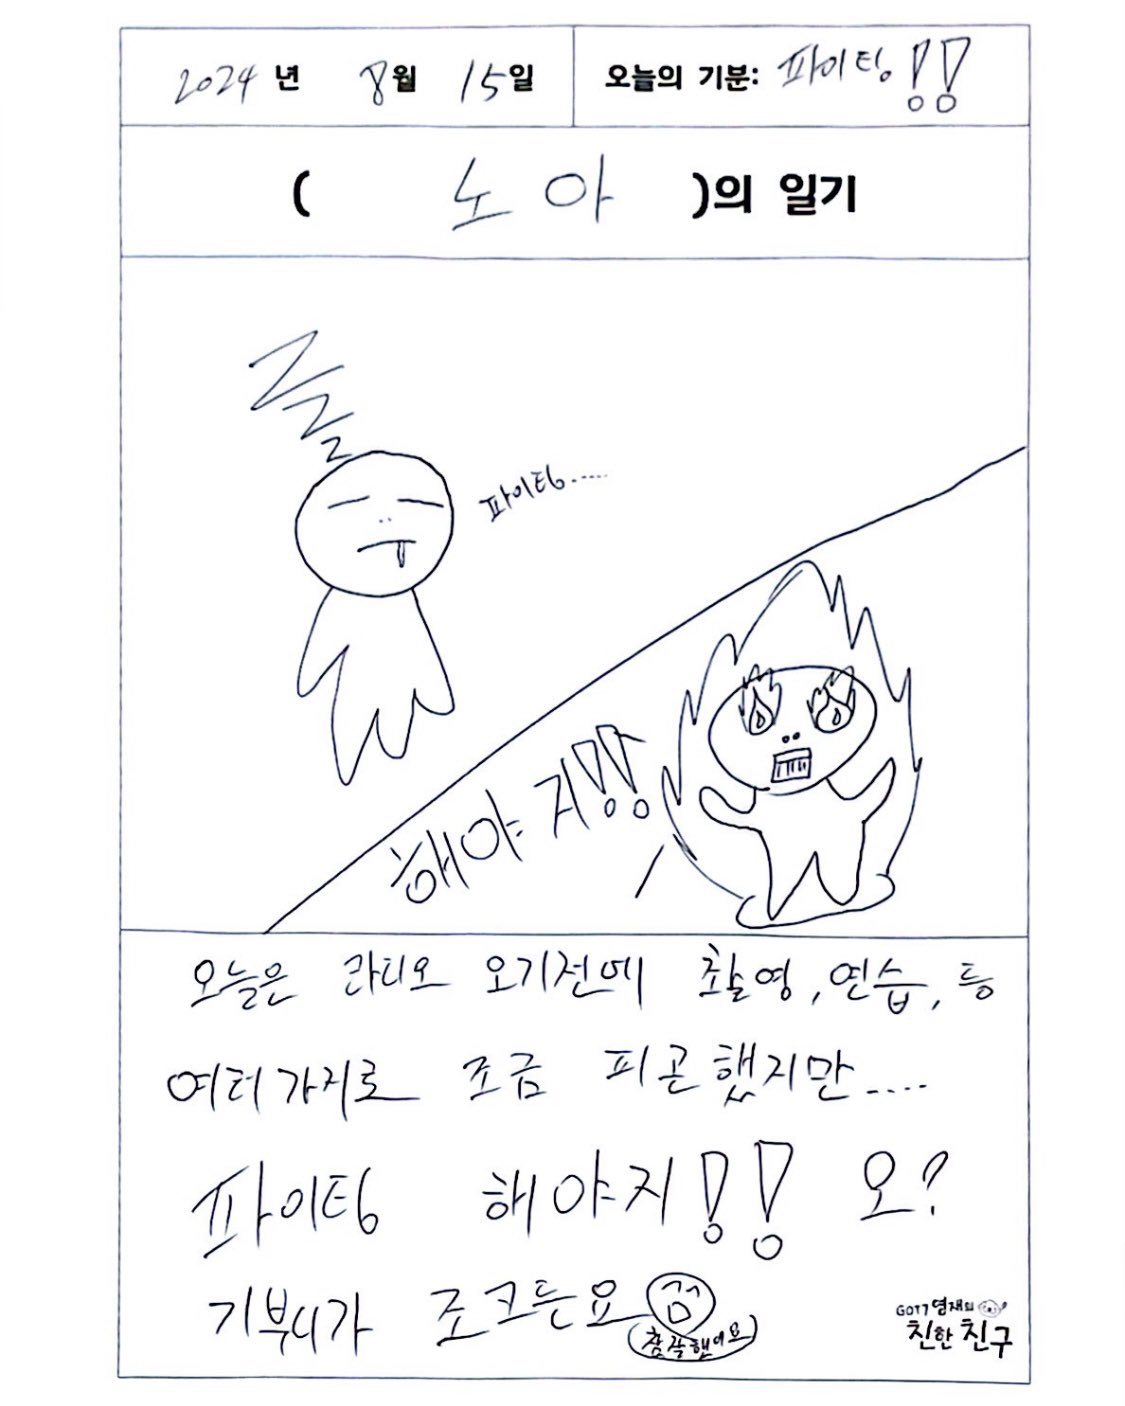 2024년 8월 15일 오늘의 기분: 파이팅!!
( 노아 )의 일기
파이팅.....
해야지!!
오늘은 라디오 오기전에 촬영, 연습, 등
여러가지로 조금 피곤했지만.....
파이팅 해야지!! 오?
기부니가 조크든요
(참 잘했어요)
GOT7 영재의
친한친구